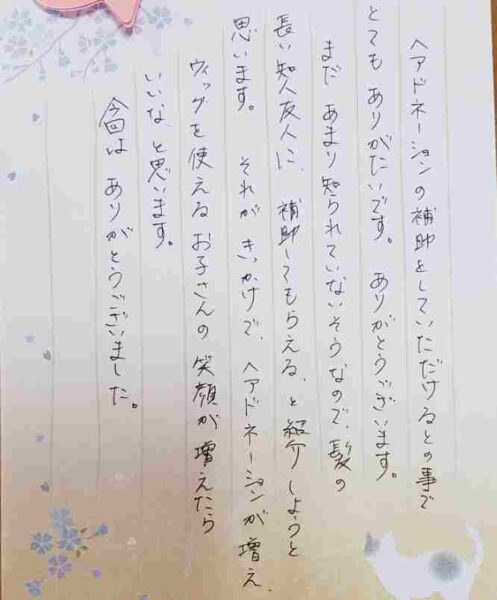 ヘアドネーションの補助をしていただけるとの事で
とてもありがたいです。ありがとうございます。
まだあまり知られていないそうなので、髪の
長い知人友人に、補助してもらえる、と紹介しようと
思います。それがきっかけで、ヘアドネーションが増え、
ウィッグを使えるお子さんの笑顔が増えたら
いいな、と思います。
今回はありがとうございました。